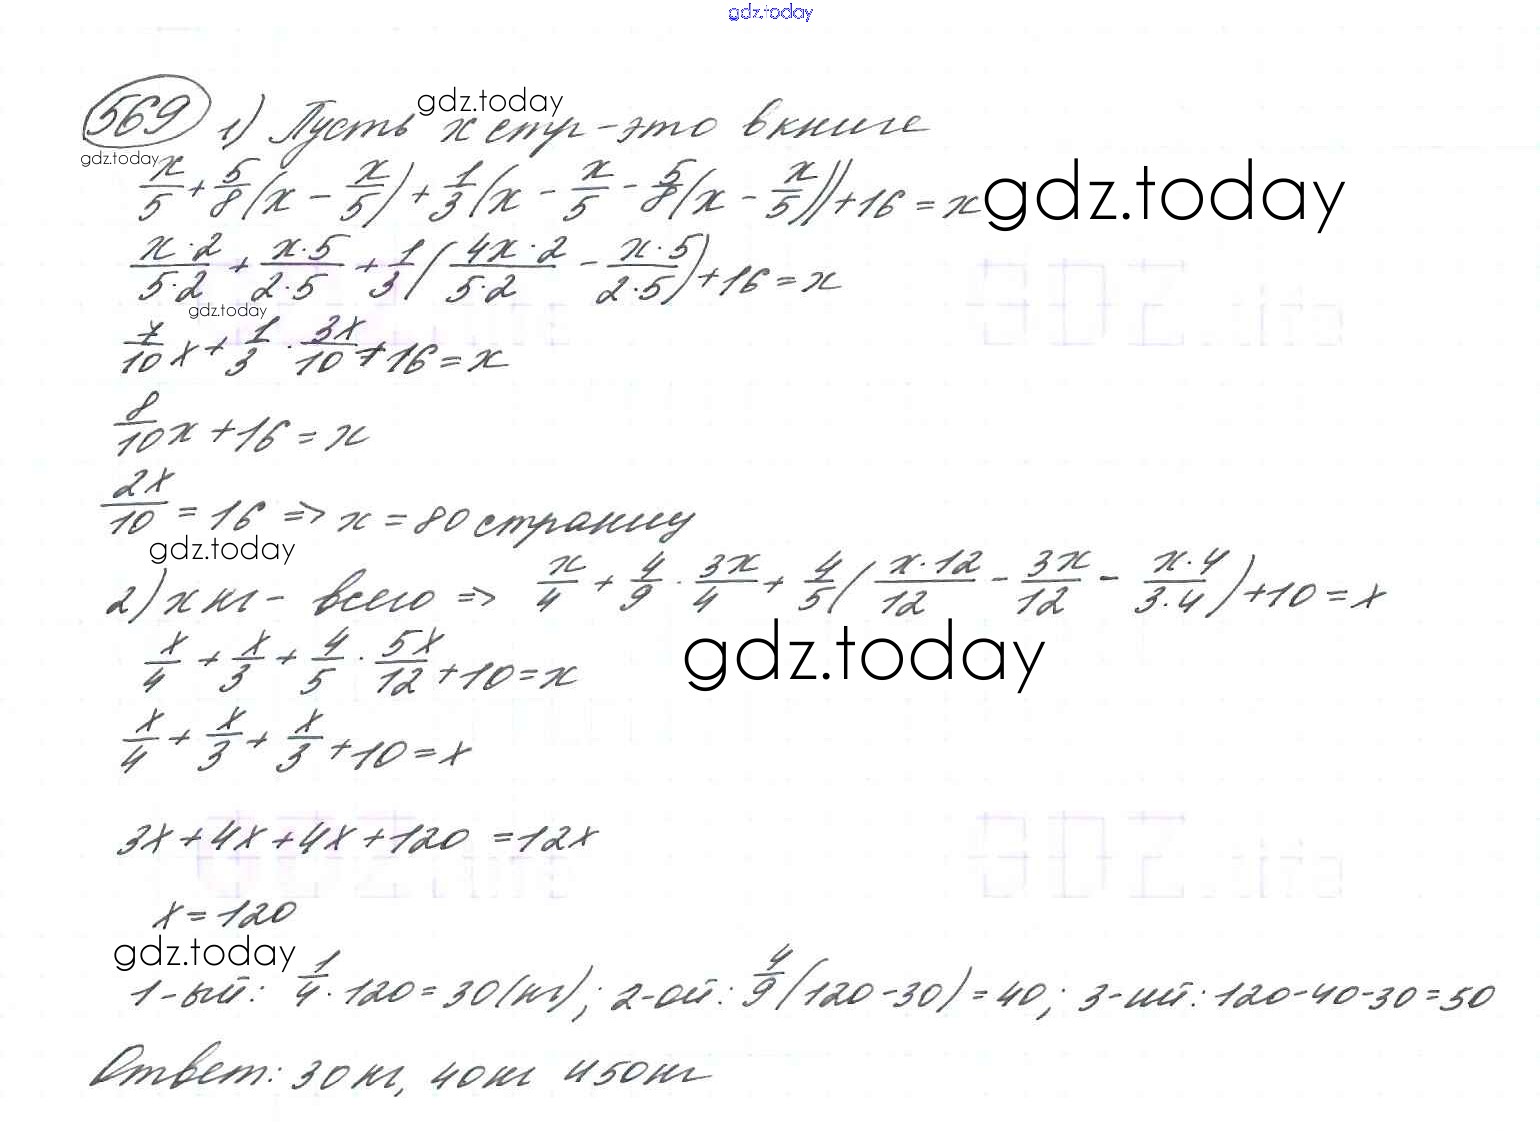 gdz.today
569 1) Пусть x стр - это в книге gdz.today
gdz.today
x/5 + 5/8(x - x/5) + 1/3(x - x/5 - 5/8(x - x/5)) + 16 = x gdz.today
x·2/5·2 + x·5/2·5 + 1/3(4x·2/5·2 - x·5/2·5) + 16 = x
gdz.today
7/10 x + 1/3 · 3x/10 + 16 = x
8/10 x + 16 = x
2x/10 = 16 => x = 80 страниц
gdz.today
2) x кг - всего => x/4 + 4/9 · 3x/4 + 4/5(x·12/12 - 3x/12 - x·4/3·4) + 10 = x
x/4 + x/3 + 4/5 · 5x/12 + 10 = x gdz.today
x/4 + x/3 + x/3 + 10 = x
3x + 4x + 4x + 120 = 12x
x = 120
gdz.today
1-ый: 1/4 · 120 = 30 (кг); 2-ой: 4/9(120 - 30) = 40; 3-ий: 120 - 40 - 30 = 50
Ответ: 30 кг, 40 кг и 50 кг